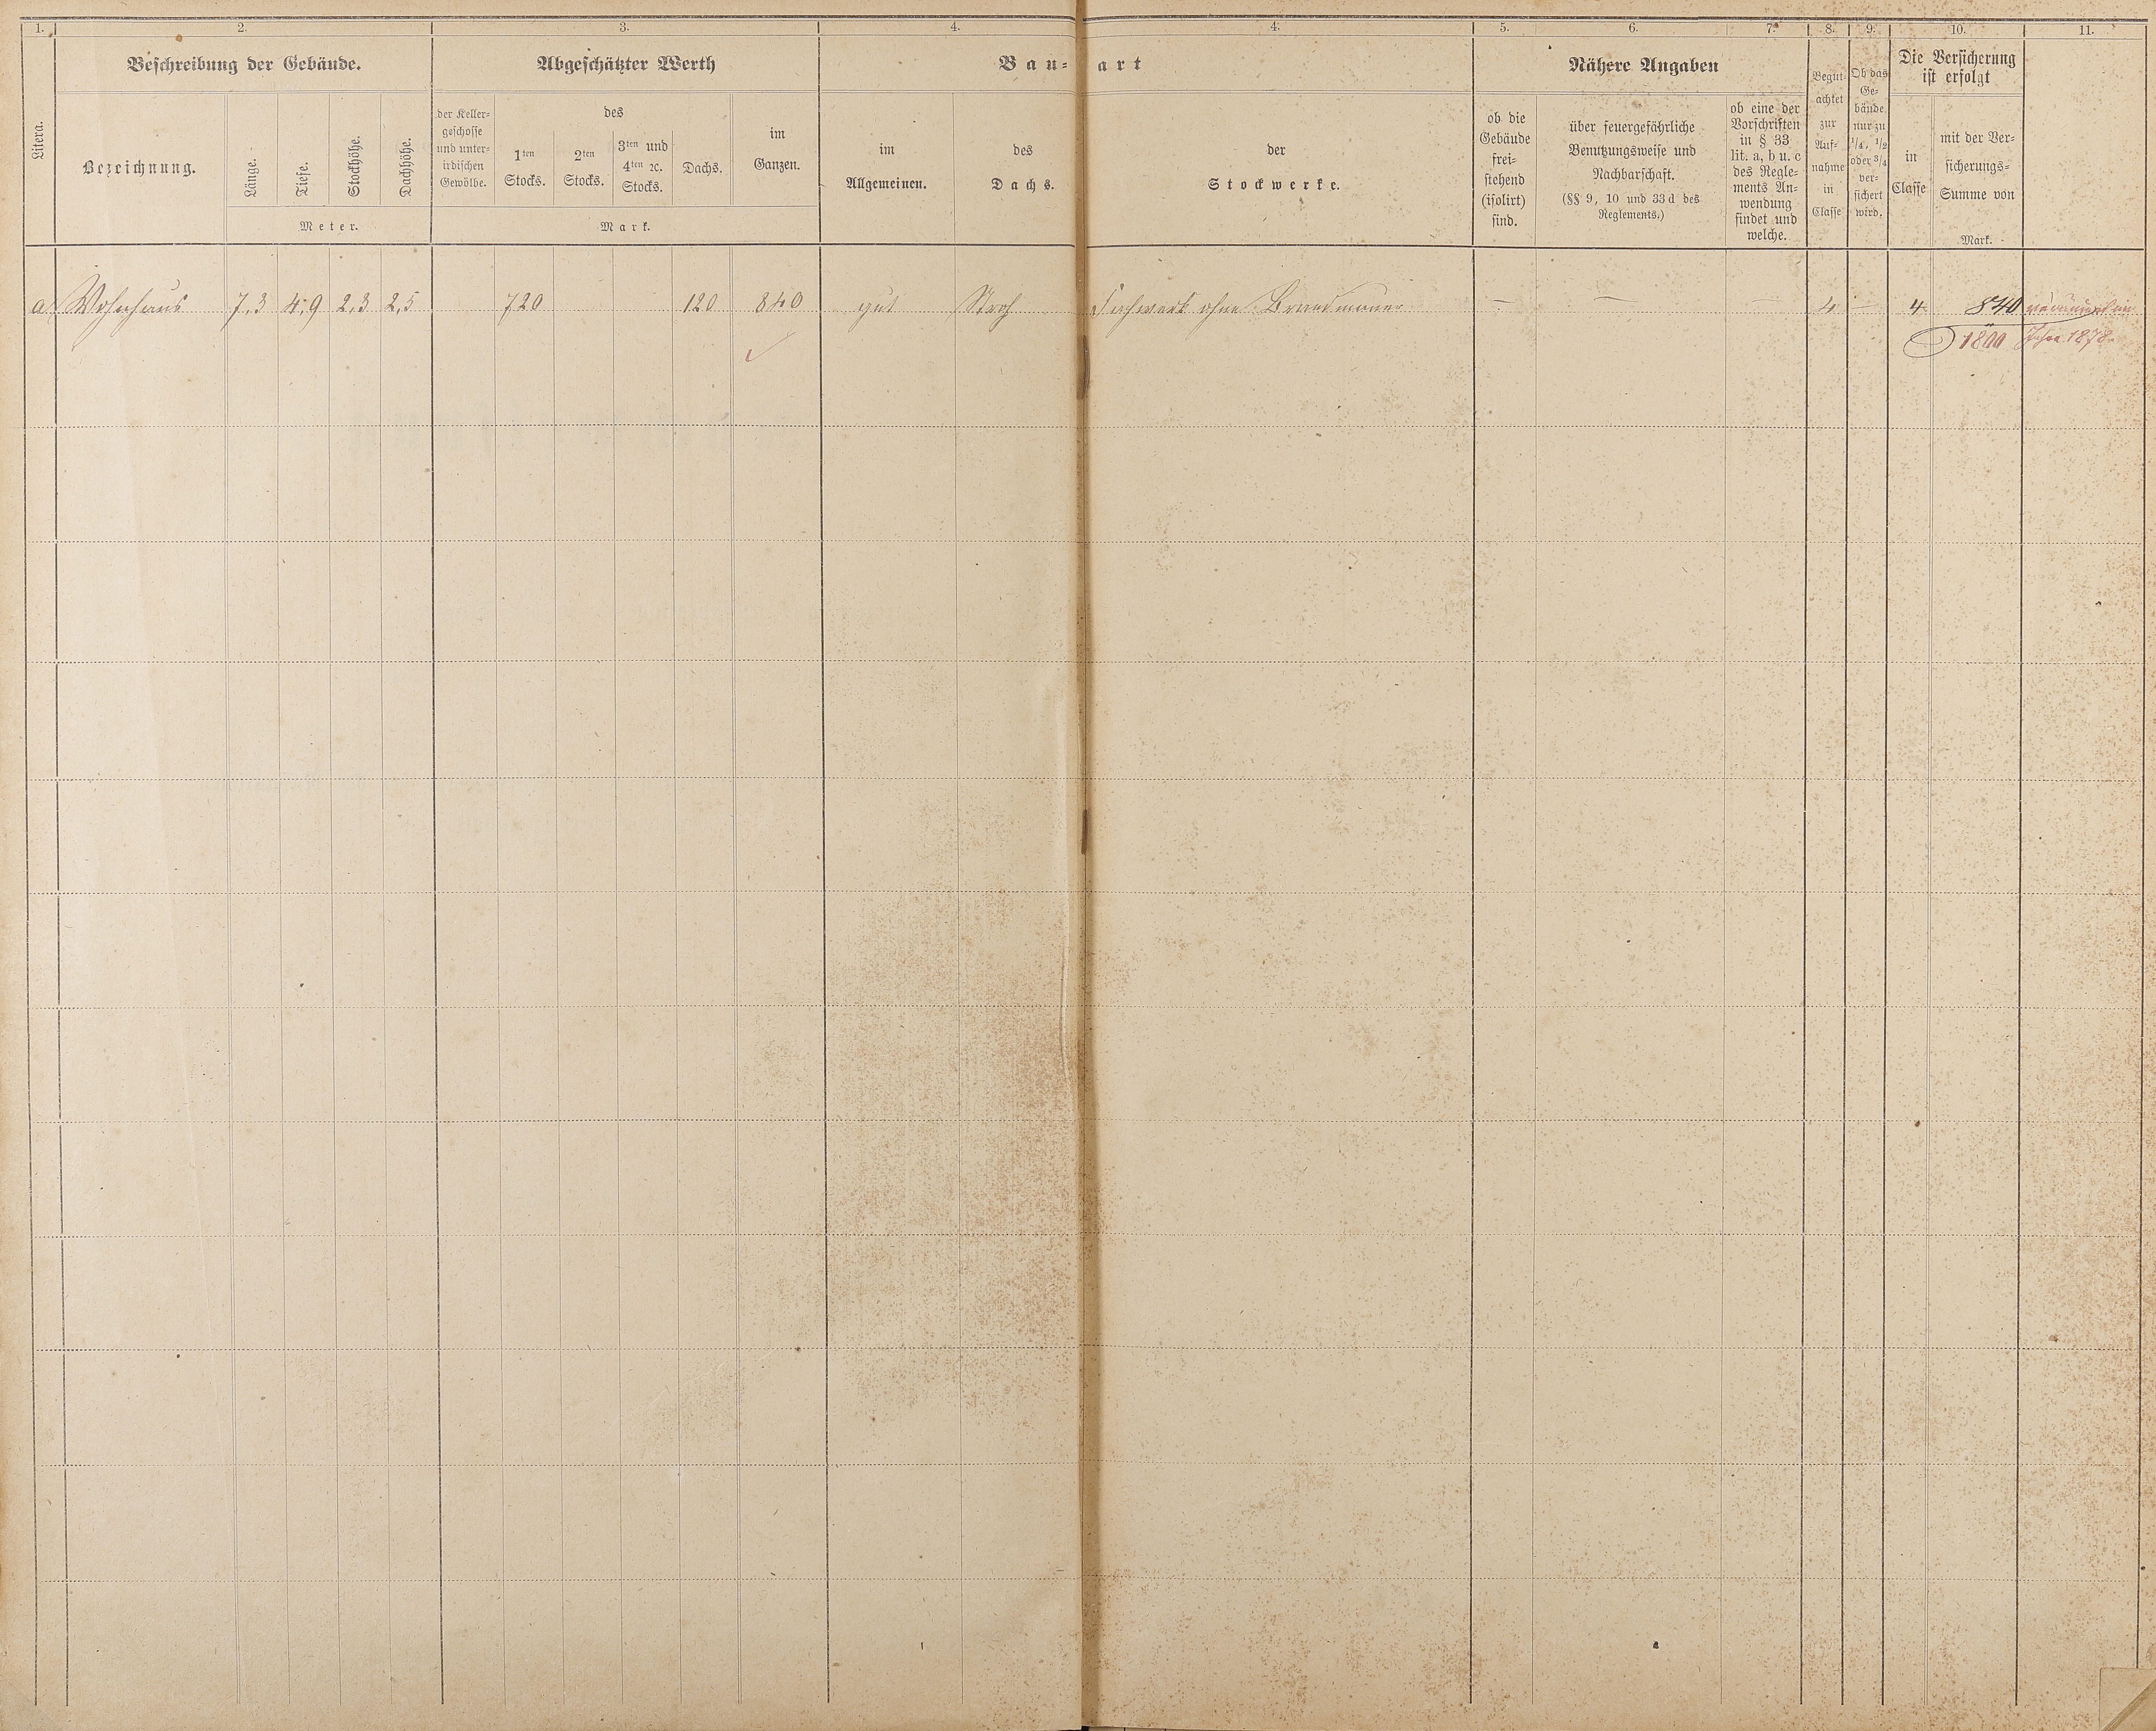 1. 2. 3. 4. 4. 5. 6. 7. 8. 9. 10. 11.
Beschreibung der Gebäude. Abgeschätzter Werth Bau- art Nähere Angaben Die Versicherung
ist erfolgt
Litera.
Bezeichnung.
Länge.
Tiefe.
Stockhöhe.
Dachhöhe.
Meter.
der Keller-
geschosse
und unter-
irdischen
Gewölbe.
des
1ten
Stocks.
2ten
Stocks.
3ten und
4ten ꝛc.
Stocks.
Dachs.
im
Ganzen.
Mark.
im
Allgemeinen.
des
Dachs.
der
Stockwerke.
ob die
Gebäude
frei-
stehend
(isolirt)
sind.
über feuergefährliche
Benutzungsweise und
Nachbarschaft.
(§§ 9, 10 und 33 d des
Reglements.)
ob eine der
Vorschriften
in § 33
lit. a, b u. c
des Regle-
ments An-
wendung
findet und
welche.
Begut-
achtet
zur
Auf-
nahme
in
Classe
Ob das
Ge-
bäude
nur zu
1/4, 1/2
oder 3/4
ver-
sichert
wird.
in
Classe
mit der Ver-
sicherungs-
Summe von
Mark.
a Wohnhaus 7,3 4,9 2,3 2,5 720 120 840 gut Stroh Fachwerk ohne Brandmauer — — — 4 — 4 840
1800 Jahre 1878.